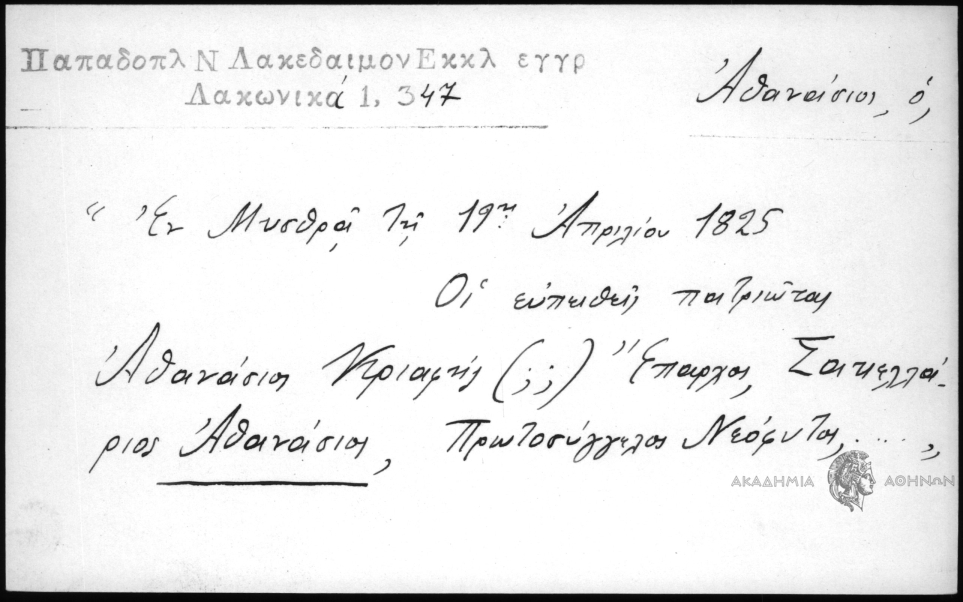 Παπαδοπλ Ν Λακεδαιμον Εκκλ εγγρ
Λακωνικά 1, 347
Ἀθανάσιος, ὁ,
“ Ἐν Μυσθρᾷ τῇ 19ῃ Ἀπριλίου 1825
Οἱ εὐπειθεῖς πατριῶται
Ἀθανάσιος Κριαφης (;;) Ἔπαρχος, Σακελλά-
ριος Ἀθανάσιος, Πρωτοσύγγελος Νεόφυτος, ....,
ΑΚΑΔΗΜΙΑ ΑΘΗΝΩΝ